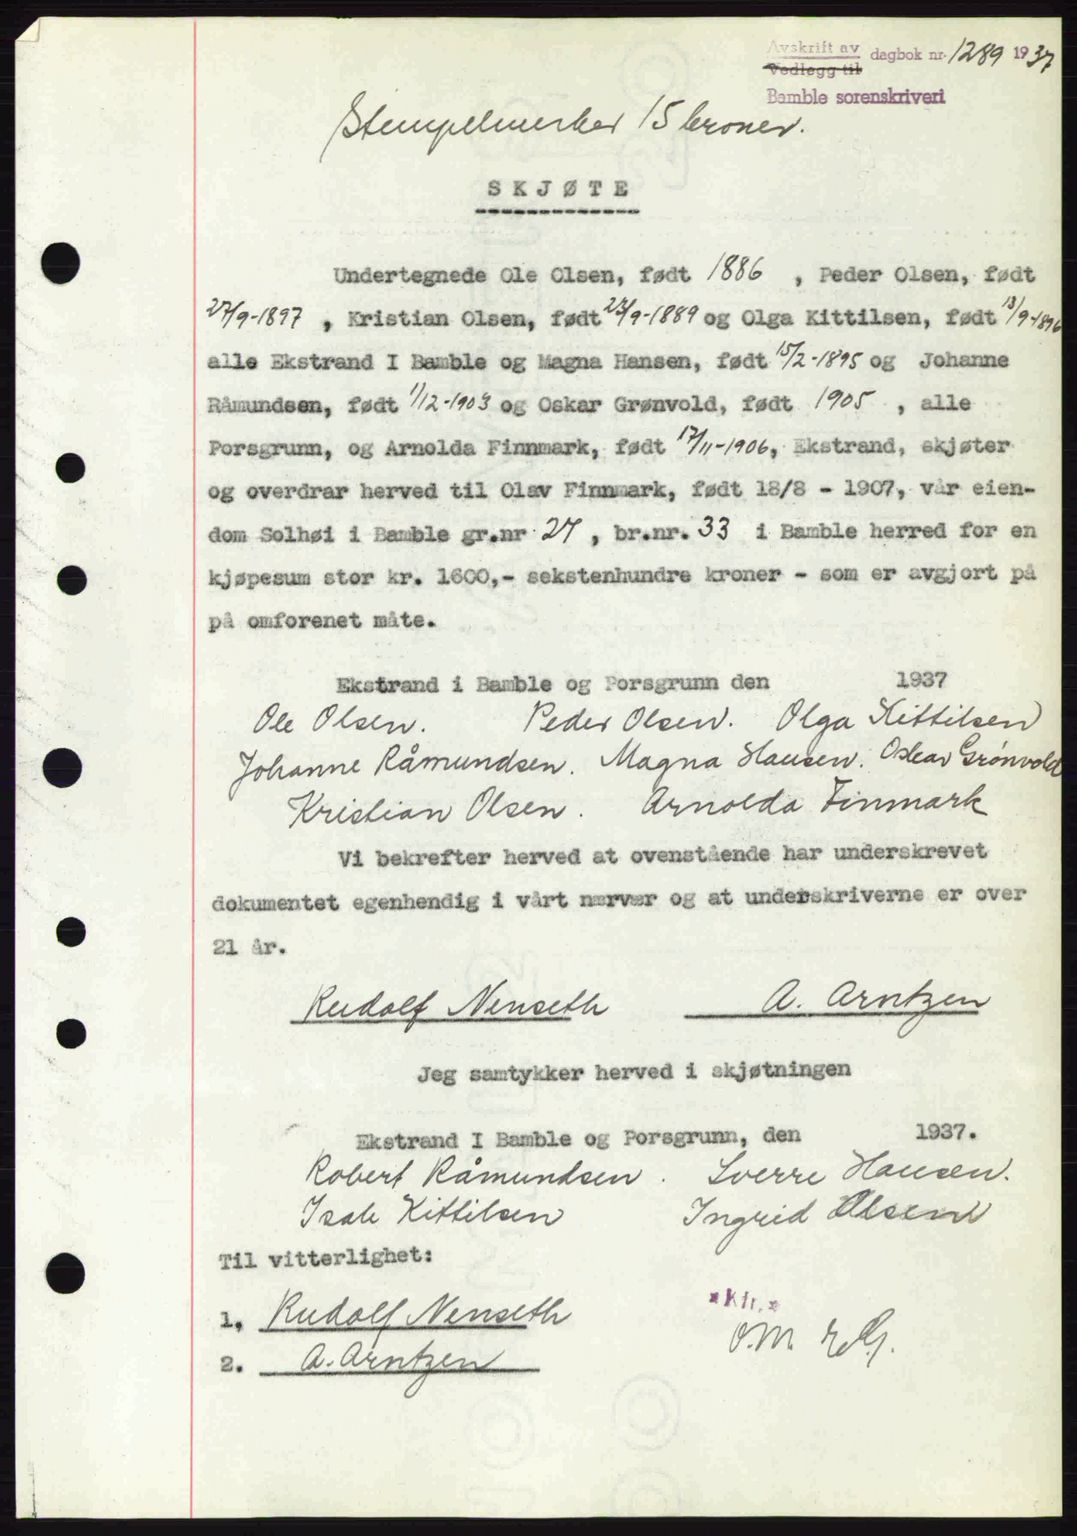 Avskrift av
Vedlegg til dagbok nr. 1289 1937
Bamble sorenskriveri
Stempelmerker 15 kroner.
SKJØTE
Undertegnede Ole Olsen, født 1886 , Peder Olsen, født
27/9-1897 , Kristian Olsen, født 23/9-1889 og Olga Kittilsen, født 13/9-1896
alle Ekstrand I Bamble og Magna Hansen, født 15/2-1895 og Johanne
Råmundsen, født 1/12-1903 og Oskar Grønvold, født 1905 , alle
Porsgrunn, og Arnolda Finnmark, født 17/11-1906, Ekstrand, skjøter
og overdrar herved til Olav Finnmark, født 18/8 - 1907, vår eien-
dom Solhøi i Bamble gr.nr 27 , br.nr. 33 i Bamble herred for en
kjøpesum stor kr. 1600,- sekstenhundre kroner - som er avgjort på
på omforenet måte.
Ekstrand i Bamble og Porsgrunn den 1937
Ole Olsen. Peder Olsen. Olga Kittilsen
Johanne Råmundsen. Magna Hansen. Oskar Grønvold
Kristian Olsen. Arnolda Finmark
Vi bekrefter herved at ovenstående har underskrevet
dokumentet egenhendig i vårt nærvær og at underskriverne er over
21 år.
Rudolf Nenseth A. Arntzen
Jeg samtykker herved i skjøtningen
Ekstrand I Bamble og Porsgrunn, den 1937.
Robert Råmundsen. Sverre Hansen.
Isak Kittilsen Ingrid Olsen
Til vitterlighet:
1, Rudolf Nenseth
*Kfr.*
2. A. Arntzen
O.M.